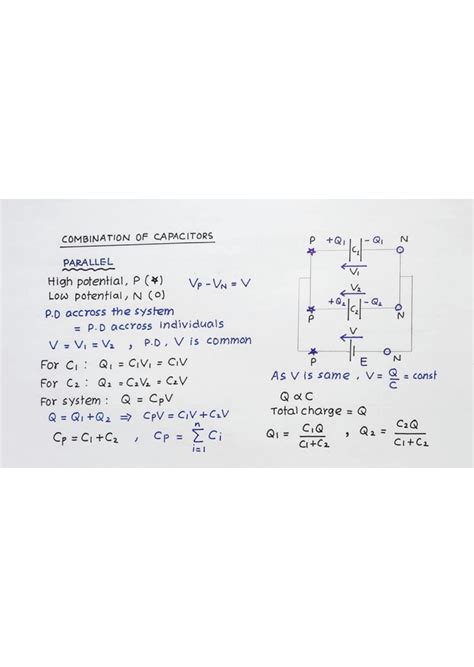 COMBINATION OF CAPACITORS
PARALLEL
High potential, P (★)
Low potential, N (O)
Vₚ - V_N = V
P.D accross the system
= P.D accross individuals
V = V₁ = V₂ , P.D, V is common
For C₁ : Q₁ = C₁V₁ = C₁V
For C₂ : Q₂ = C₂V₂ = C₂V
For system : Q = CₚV
Q = Q₁ + Q₂ ⇒ CₚV = C₁V + C₂V
Cₚ = C₁ + C₂ , Cₚ = Σ Cᵢ (i=1 to n)
P +Q₁ C₁ -Q₁ N
V₁
V₂
+Q₂ C₂ -Q₂
P N
V
P E N
As V is same , V = Q/C = const
Q ∝ C
Total charge = Q
Q₁ = C₁Q/(C₁+C₂) , Q₂ = C₂Q/(C₁+C₂)